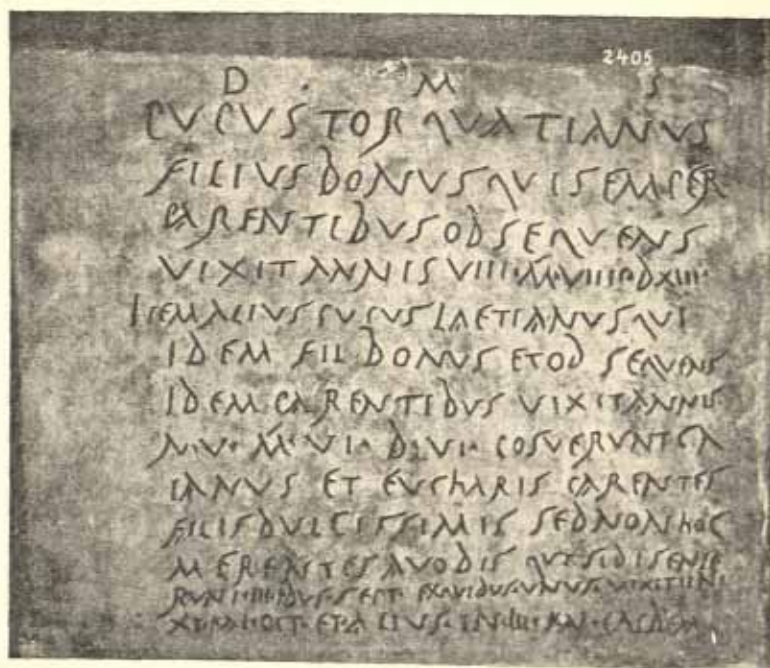 2405
D · M S
PVPVS TORQVATIANVS
FILIVS BONVS QVI SEMPER
PARENTIBVS OBSEQVENS
VIXIT ANNIS VIII·M·VIIII·D XIII·
ITEM ALIVS PVPVS LAETIANVS QVI
IDEM FIL BONVS ET OBSEQVENS
IDEM PARENTIBVS VIXIT ANNIS
N·V·M·VI·D·VI·POSVERVNT GA
IANVS ET EVCHARIS PARENTES
FILIS DVLCISSIMIS SED NON HOC
MERENTES A VOBIS
SEPT· VNVS·VIXIT
OCT·ET·ALIVS·IN